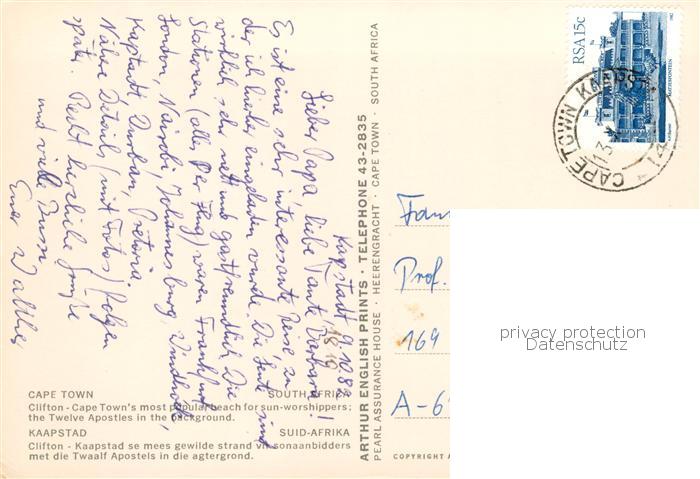 Kapstadt, 9.10.82
18 10
Liebe Papa, liebe Tante Barbara!
Es ist eine sehr interessante Reise, zu
der ich hierher eingeladen wurde. Die Leute sind
wirklich sehr nett und gastfreundlich. Die
Stationen (alles per Flug) waren Frankfurt
London, Nairobi, Johannesburg, Windhoek,
Kapstadt, Durban, Pretoria.
Nähere Details (mit Fotos) folgen
später. Recht herzliche Grüße
und viele Bussi
Euer Walther
CAPE TOWN SOUTH AFRICA
Clifton - Cape Town's most popular beach for sun-worshippers;
the Twelve Apostles in the background.
KAAPSTAD SUID-AFRIKA
Clifton - Kaapstad se mees gewilde strand vir sonaanbidders
met die Twaalf Apostels in die agtergrond.
ARTHUR ENGLISH PRINTS · TELEPHONE 43-2835
PEARL ASSURANCE HOUSE · HEERENGRACHT · CAPE TOWN · SOUTH AFRICA
COPYRIGHT
RSA 15c
MATJIESFONTEIN
CAPE TOWN
13
Fam
Prof.
169
A-6
privacy protection
Datenschutz